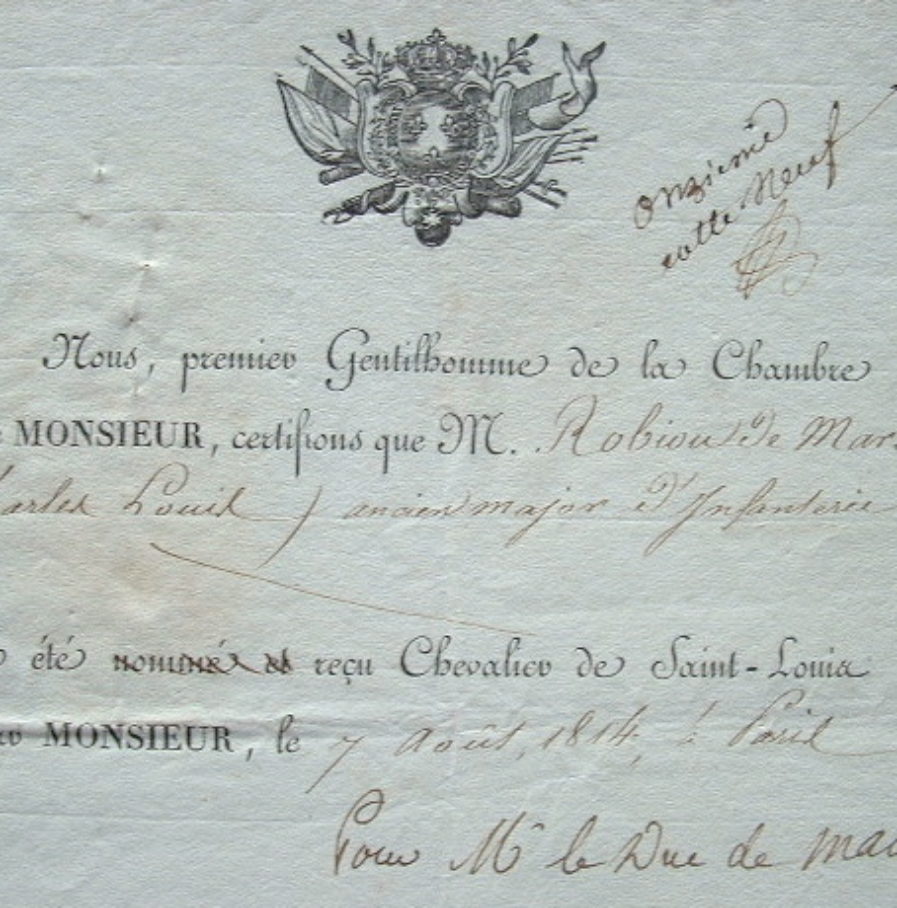 onzieme
cotte Neuf
Nous, premier Gentilhomme de la Chambre
MONSIEUR, certifions que M. Robiou de Mar
harles Louis) ancien major d'Infanterie
été nommé et reçu Chevalier de Saint-Louis
MONSIEUR, le 7 Août, 1814, à Paris
Pour Mr le Duc de mai